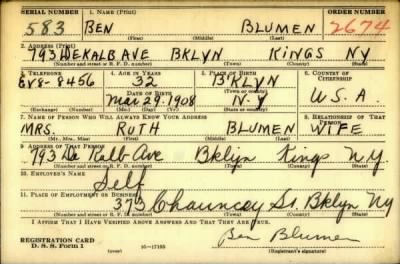 SERIAL NUMBER 1. NAME (Print) ORDER NUMBER
583 BEN BLUMEN 2674
(First) (Middle) (Last)
2. ADDRESS (Print)
793 DEKALB AVE BKLYN KINGS NY
(Number and street or R. F. D. number) (Town) (County) (State)
3. TELEPHONE 4. AGE IN YEARS 5. PLACE OF BIRTH 6. COUNTRY OF CITIZENSHIP
EV8-8456 32 B'KLYN
DATE OF BIRTH (Town or county)
Mar 29. 1908 N.Y U.S.A
(Exchange) (Number) (Mo.) (Day) (Yr.) (State or country)
7. NAME OF PERSON WHO WILL ALWAYS KNOW YOUR ADDRESS 8. RELATIONSHIP OF THAT PERSON
MRS. RUTH BLUMEN WIFE
(Mr., Mrs., Miss) (First) (Middle) (Last)
9. ADDRESS OF THAT PERSON
793 De Kalb Ave Bklyn Kings N.Y.
(Number and street or R. F. D. number) (Town) (County) (State)
10. EMPLOYER'S NAME
Self
11. PLACE OF EMPLOYMENT OR BUSINESS
373 Chauncey St. Bklyn Ny
(Number and street or R. F. D. number) (Town) (County) (State)
I AFFIRM THAT I HAVE VERIFIED ABOVE ANSWERS AND THAT THEY ARE TRUE.
REGISTRATION CARD
D. S. S. Form 1 (over) 16-17105 Ben Blumen
(Registrant's signature)